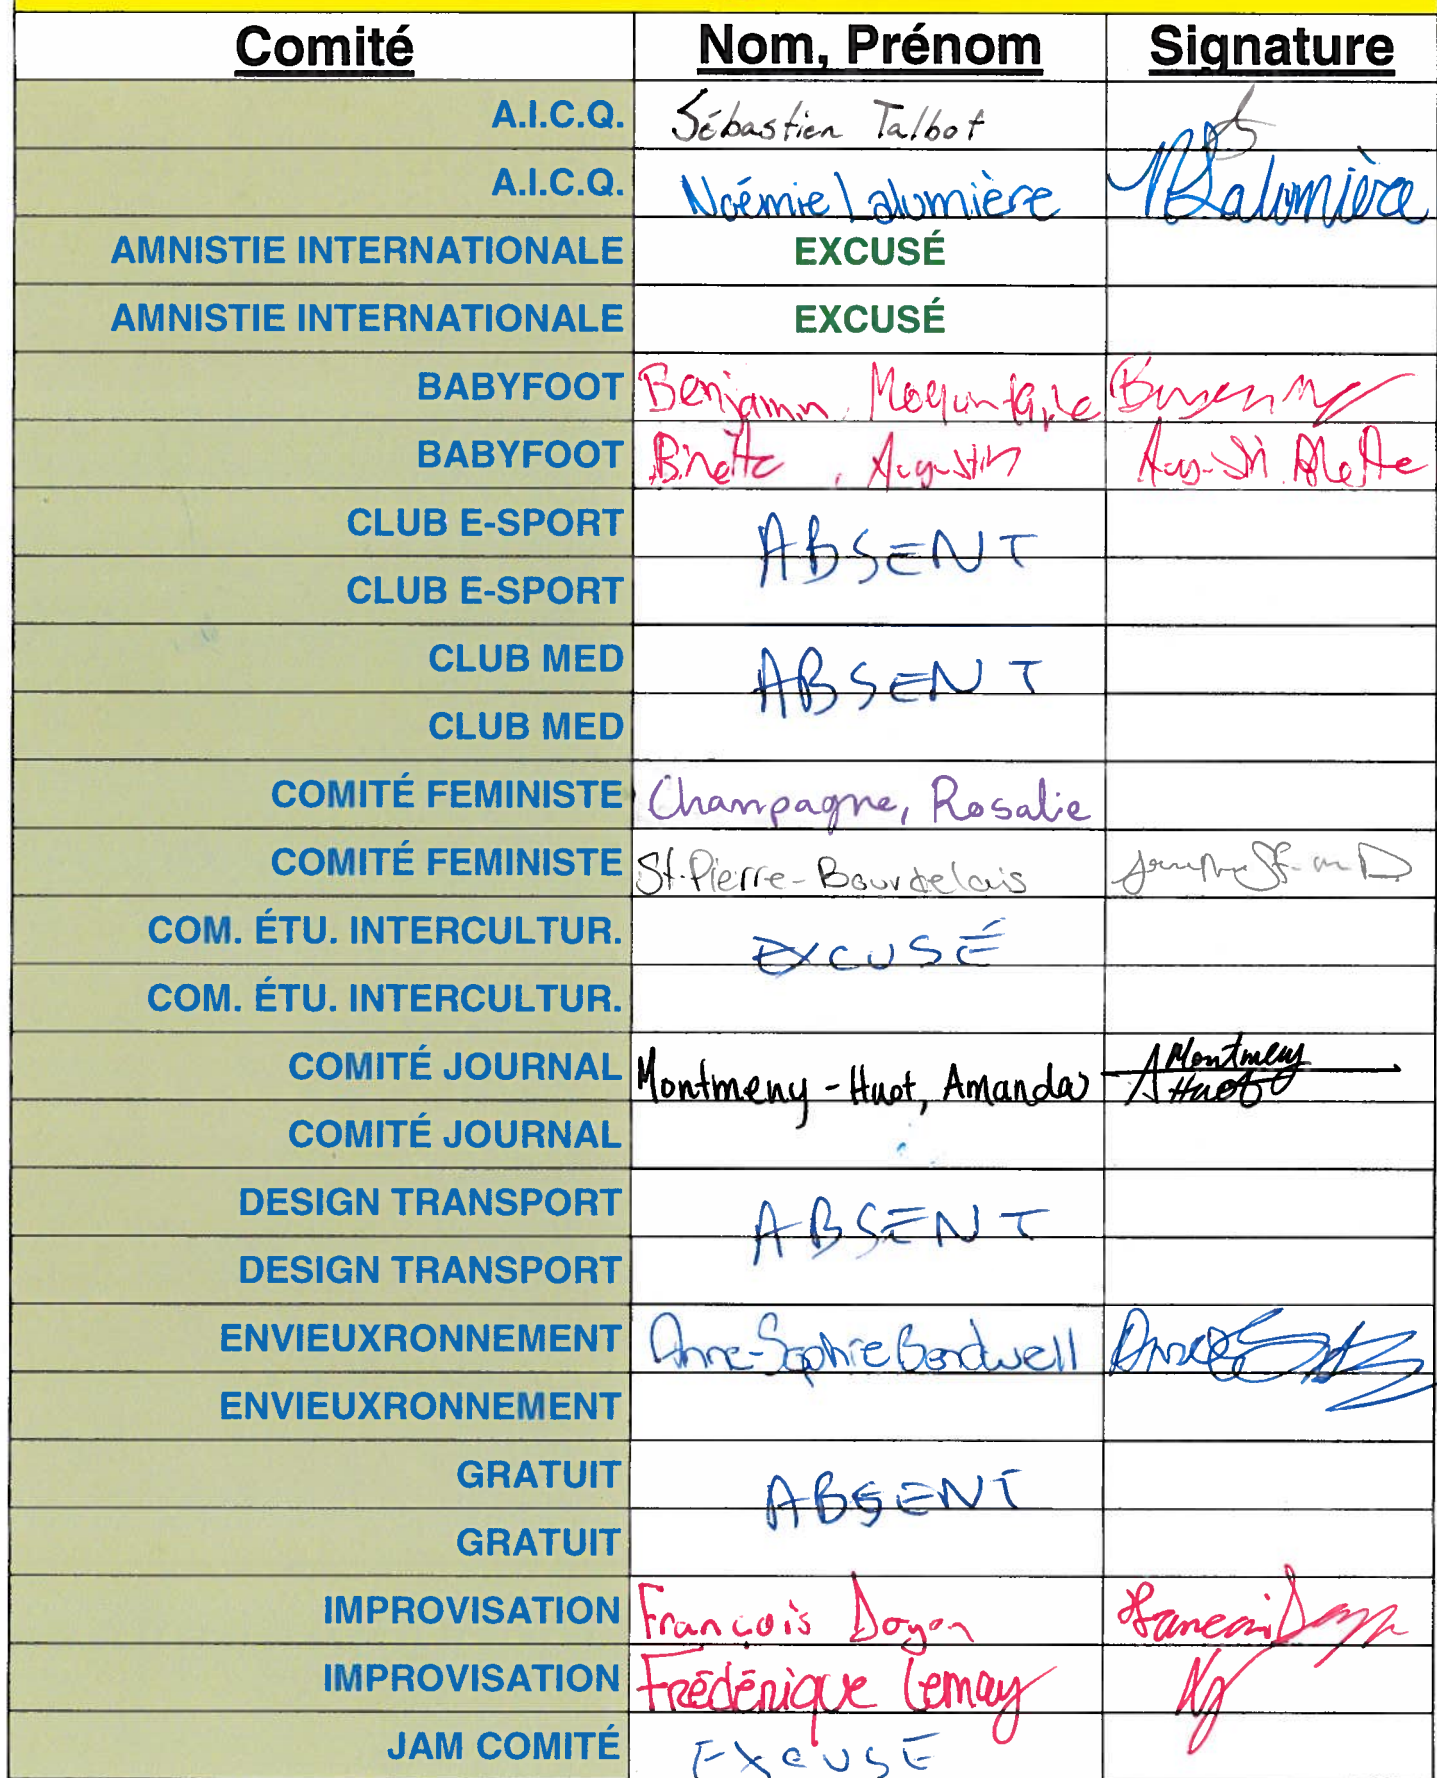 Comité Nom, Prénom Signature
A.I.C.Q. Sébastien Talbot
A.I.C.Q. Noémie Lalumière NLalumière
AMNISTIE INTERNATIONALE EXCUSÉ
AMNISTIE INTERNATIONALE EXCUSÉ
BABYFOOT Benjamin
BABYFOOT Binette, Augustin
CLUB E-SPORT ABSENT
CLUB E-SPORT
CLUB MED ABSENT
CLUB MED
COMITÉ FEMINISTE Champagne, Rosalie
COMITÉ FEMINISTE St-Pierre-Bourdelais
COM. ÉTU. INTERCULTUR. EXCUSÉ
COM. ÉTU. INTERCULTUR.
COMITÉ JOURNAL Montmeny-Huot, Amanda A Montmeny Huot
COMITÉ JOURNAL
DESIGN TRANSPORT ABSENT
DESIGN TRANSPORT
ENVIEUXRONNEMENT Anne-Sophie Bordwell
ENVIEUXRONNEMENT
GRATUIT ABSENT
GRATUIT
IMPROVISATION François Doyon
IMPROVISATION Frédérique Lemay
JAM COMITÉ EXCUSE